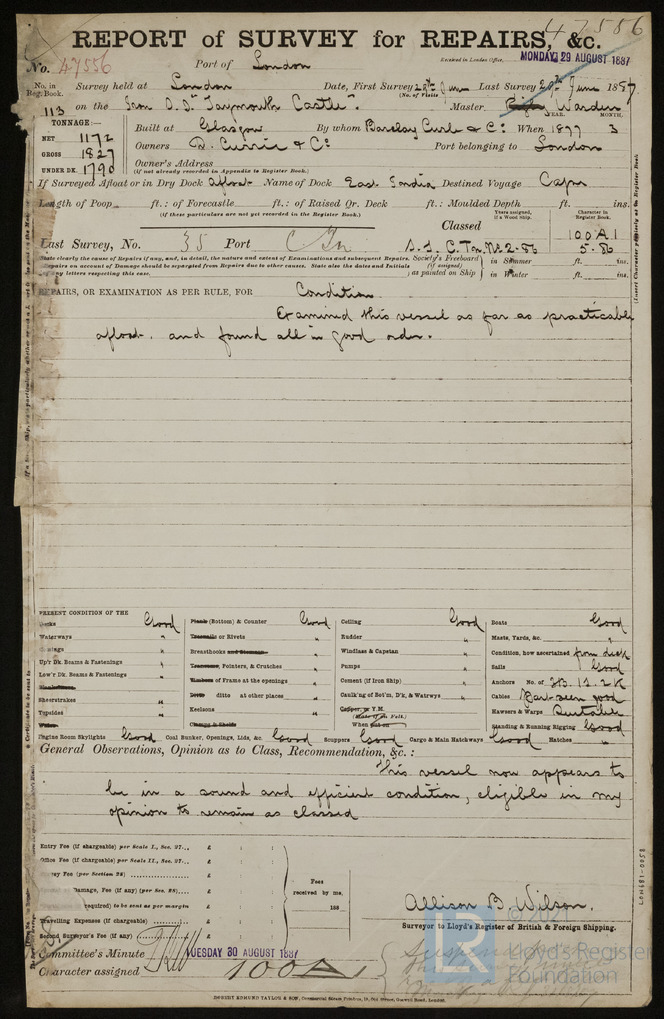 47586
REPORT of SURVEY for REPAIRS, &c.
No. 47556 Port of London Received in London Office. MONDAY 29 AUGUST 1887
No. in Reg. Book. Survey held at London Date, First Survey 20th June Last Survey 20th June 1887
(No. of Visits)
113 on the Iron S.S. "Taymouth Castle". Master Warden
TONNAGE:— YEAR. MONTH.
NET 1172 Built at Glasgow By whom Barclay Curle & Co. When 1877 3
GROSS 1827 Owners D. Currie & Co Port belonging to London
UNDER DK. 1790 Owner's Address
(If not already recorded in Appendix to Register Book.)
If Surveyed Afloat or in Dry Dock Afloat Name of Dock East India Destined Voyage Cape
Length of Poop ft.: of Forecastle ft.: of Raised Qr. Deck ft.: Moulded Depth ft. ins.
(If these particulars are not yet recorded in the Register Book.)
Classed Years assigned, if a Wood Ship. Character in Register Book.
100 A1
Last Survey, No. 35 Port C Tn S.S. C.Tn. No 2-86 5-86
State clearly the cause of Repairs if any, and, in detail, the nature and extent of Examinations and subsequent Repairs.
Repairs on account of Damage should be separated from Repairs due to other causes. State also the dates and initials
of any letters respecting this case.
Society's Freeboard (if assigned) as painted on Ship in Summer ft. ins.
in Winter ft. ins.
REPAIRS, OR EXAMINATION AS PER RULE, FOR Condition
Examined this vessel as far as practicable
afloat, and found all in good order.
PRESENT CONDITION OF THE
Decks Good
Waterways "
Up'r Dk. Beams & Fastenings "
Low'r Dk. Beams & Fastenings "
Sheerstrakes "
Topsides "
Planks (Bottom) & Counter Good
Treenails or Rivets "
Breasthooks and Stemson "
Transoms, Pointers, & Crutches "
Timbers of Frame at the openings "
Ditto ditto at other places "
Keelsons "
Ceiling Good
Rudder "
Windlass & Capstan "
Pumps "
Cement (if Iron Ship) "
Caulk'ng of Bot'm, D'k, & Watrwys "
Copper, or Y.M.
(State if on Felt.)
When put on
Boats Good
Masts, Yards, &c. "
Condition, how ascertained from deck
Sails Good
Anchors No. of 3B. 1S. 2K
Cables Part seen good
Hawsers & Warps Suitable
Standing & Running Rigging Good
Engine Room Skylights Good Coal Bunker, Openings, Lids, &c. Good Scuppers Good Cargo & Main Hatchways Good Hatches "
General Observations, Opinion as to Class, Recommendation, &c.:
This vessel now appears to
be in a sound and efficient condition, eligible in my
opinion to remain as classed
Entry Fee (if chargeable) per Scale I., Sec. 27... £
Office Fee (if chargeable) per Scale II., Sec. 27... £
Survey Fee (per Section 28) £
Damage, Fee (if any) (per Sec. 28) £
required) to be sent as per margin
Travelling Expenses (if chargeable) £
Second Surveyor's Fee (if any) £
Fees received by me,
188
Allison B. Wilson.
Surveyor to Lloyd's Register of British & Foreign Shipping.
Committee's Minute TUESDAY 30 AUGUST 1887
Character assigned 100 A 1
LR
Lloyd's Register
Foundation
LON681-0058